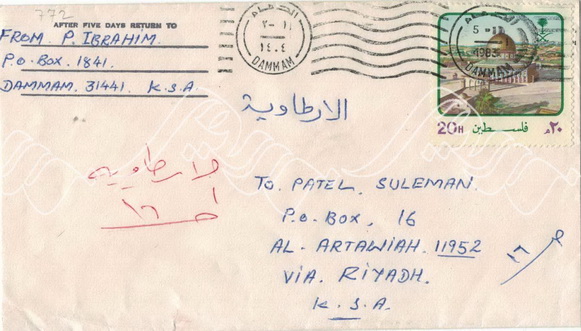 772
AFTER FIVE DAYS RETURN TO
FROM P. IBRAHIM.
P.O. BOX. 1841.
DAMMAM. 31441. K.S.A.
الدمام
DAMMAM
الدمام
1983
DAMMAM
20H
فلسطين
٢٠
الارطاوية
لارطاويه
١٦
TO. PATEL, SULEMAN.
P.O. BOX, 16
AL-ARTAWIAH. 11952
VIA. RIYADH.
K.S.A.
١٦